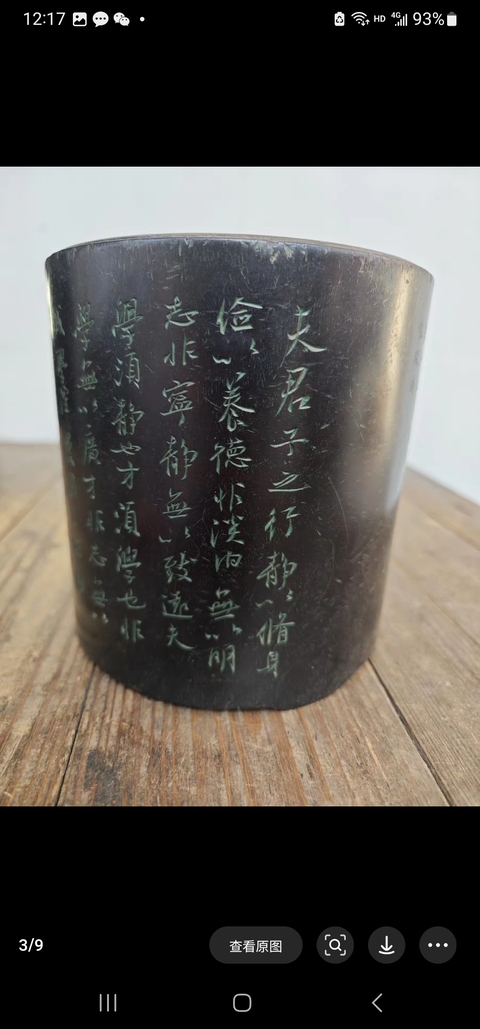 12:17
HD 4G 93%
夫君子之行静以脩身
俭以養德非淡泊無以明
志非寧静無以致遠夫
學須静也才須學也非
學無以廣才非志無以
3/9
查看原图